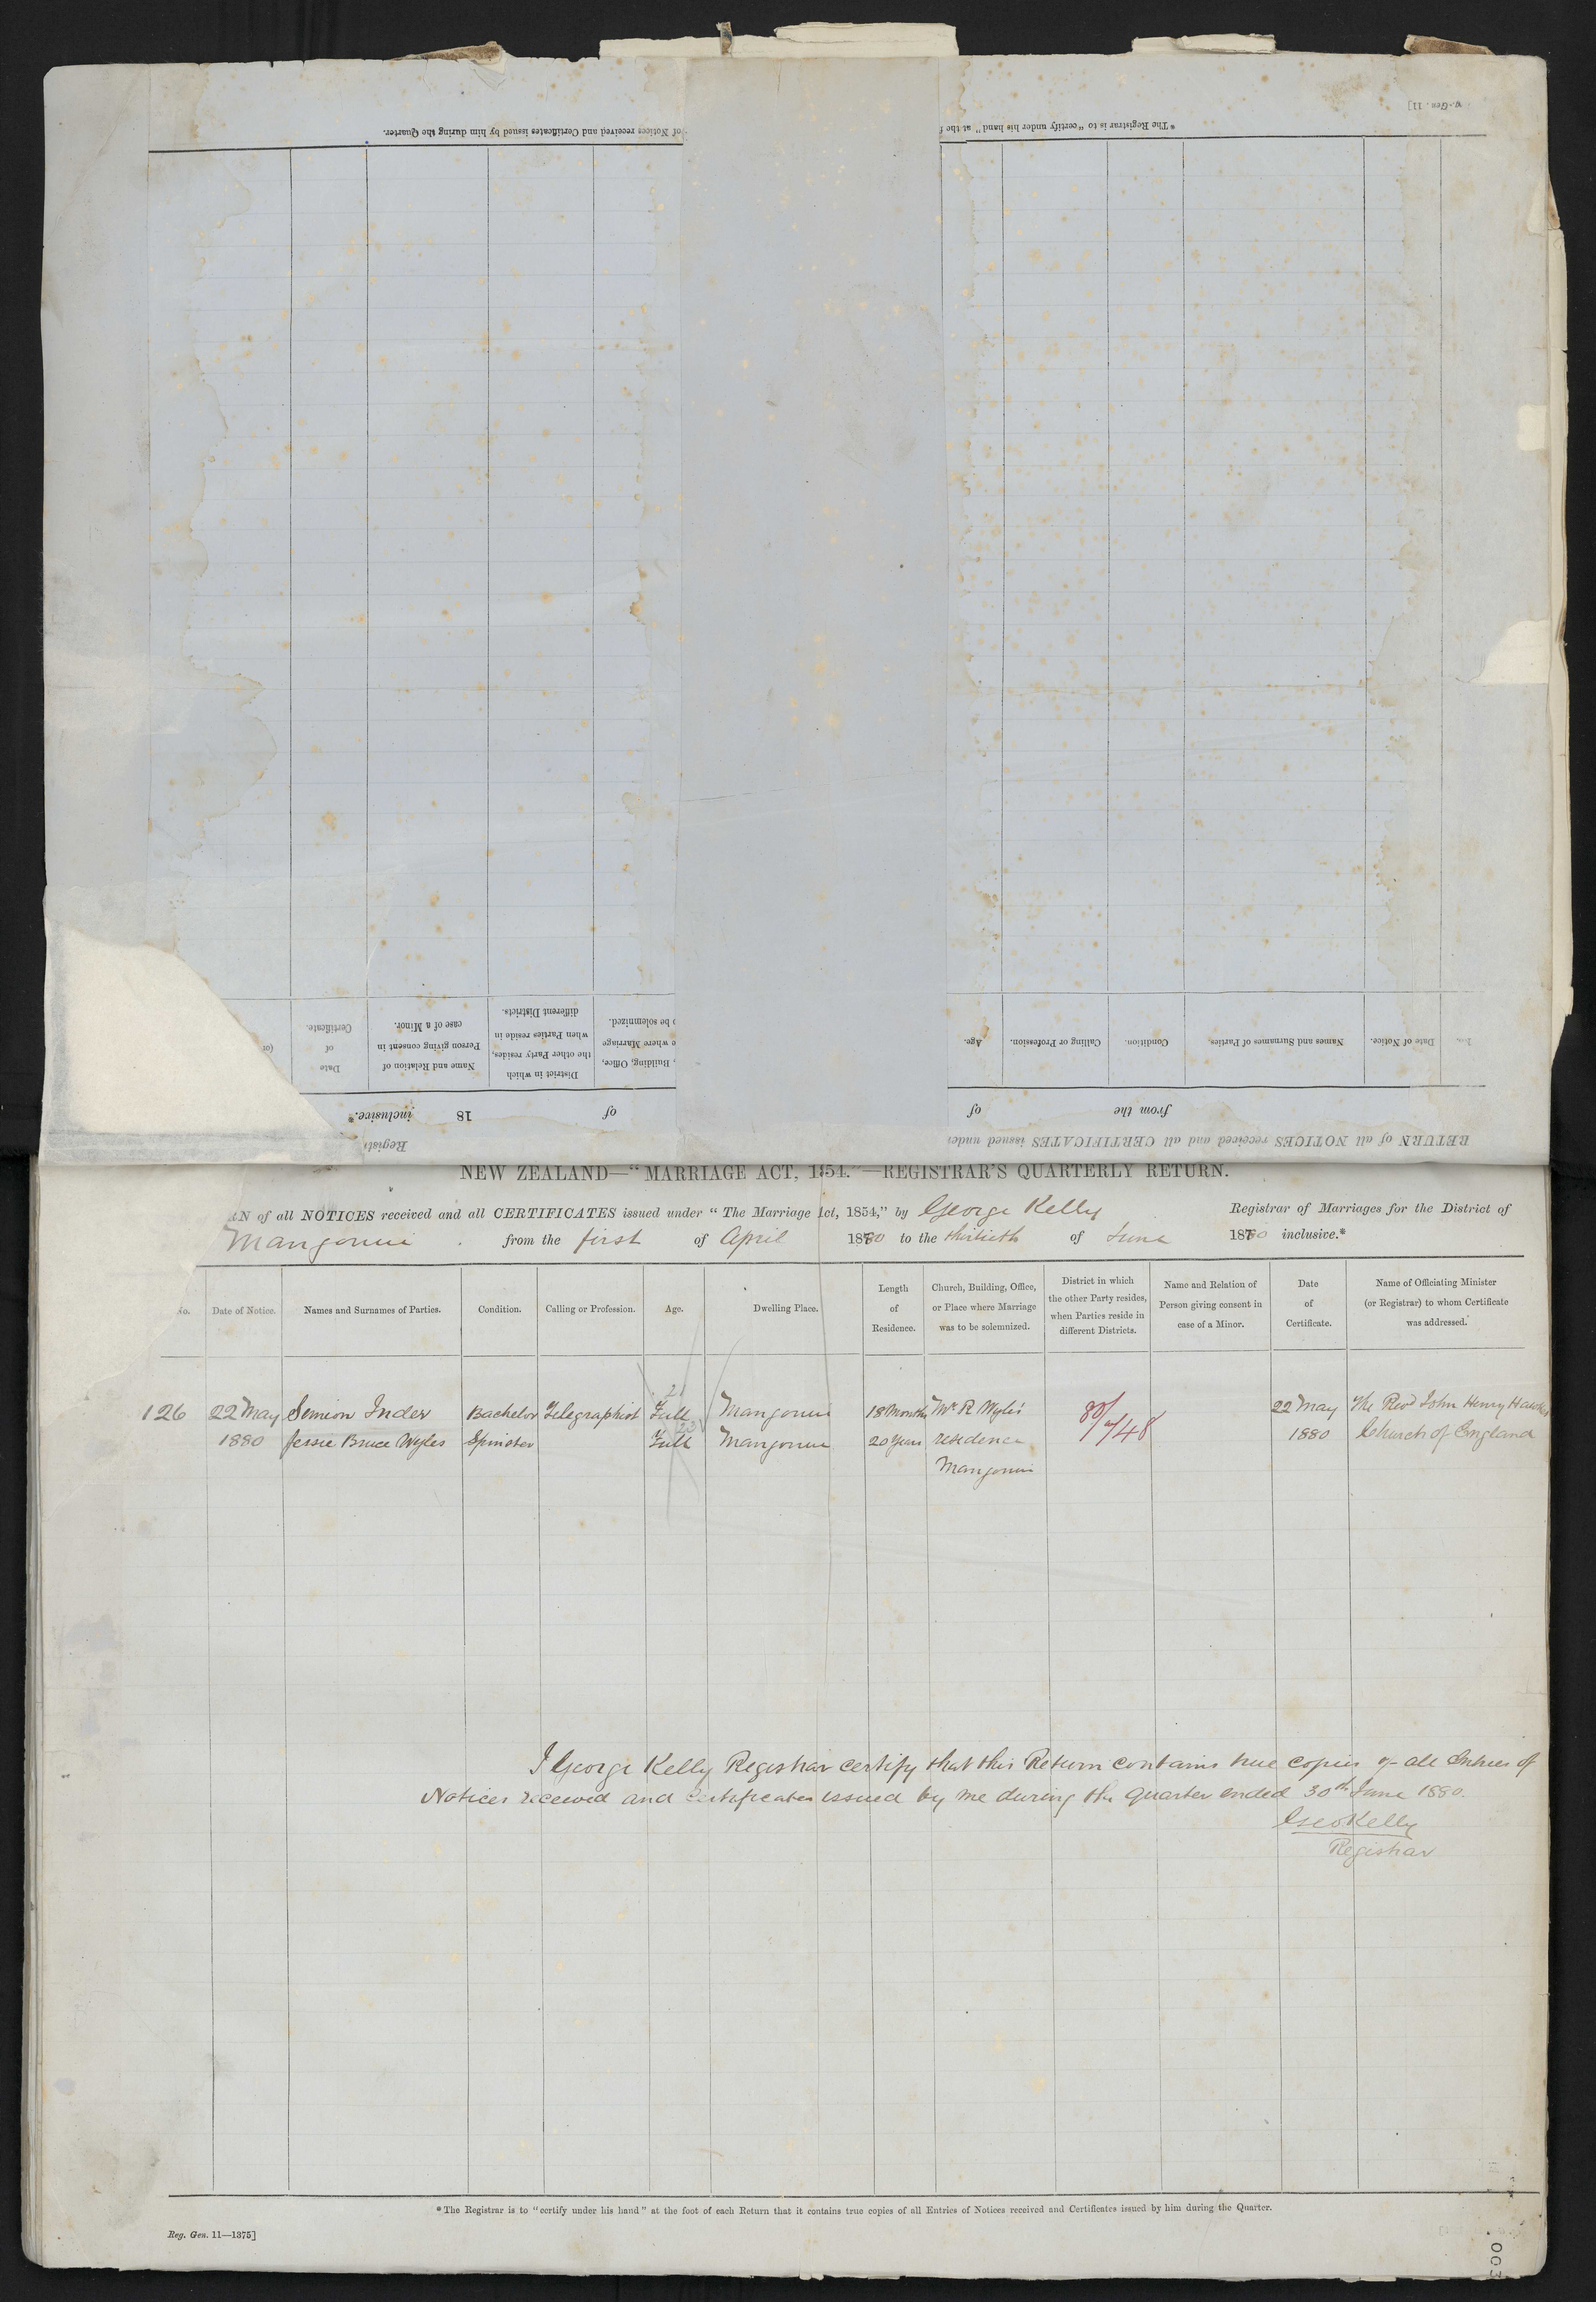 of Notices received and Certificates issued by him during the Quarter.
* The Registrar is to "certify under his hand" at the f
-Gen. 11]
Date of Certificate.
Name and Relation of Person giving consent in case of a Minor.
District in which the other Party resides, when Parties reside in different Districts.
, Building, Office, e where Marriage o be solemnized.
Age.
Calling or Profession.
Condition.
Names and Surnames of Parties.
Date of Notice.
No.
from the of
of 18 inclusive.*
RETURN of all NOTICES received and all CERTIFICATES issued under
Regist
NEW ZEALAND—"MARRIAGE ACT, 1854."—REGISTRAR'S QUARTERLY RETURN.
RN of all NOTICES received and all CERTIFICATES issued under "The Marriage Act, 1854," by George Kelly Registrar of Marriages for the District of
Mangonui from the first of April 1880 to the thirtieth of June 1880 inclusive.*
No. Date of Notice. Names and Surnames of Parties. Condition. Calling or Profession. Age. Dwelling Place. Length of Residence. Church, Building, Office, or Place where Marriage was to be solemnized. District in which the other Party resides, when Parties reside in different Districts. Name and Relation of Person giving consent in case of a Minor. Date of Certificate. Name of Officiating Minister (or Registrar) to whom Certificate was addressed.
126 22 May Simeon Inder Bachelor Telegraphist Full Mangonui 18 Months Mr R Wyles' 80/748 22 May The Revd John Henry Hawkes
1880 Jessie Bruce Wyles Spinster Full Mangonui 20 Years residence 1880 Church of England
Mangonui
I George Kelly Registrar certify that this Return contains true copies of all Entries of
Notices received and Certificates issued by me during the quarter ended 30th June 1880.
Geo Kelly
Registrar
* The Registrar is to "certify under his hand" at the foot of each Return that it contains true copies of all Entries of Notices received and Certificates issued by him during the Quarter.
Reg. Gen. 11—1375]
003